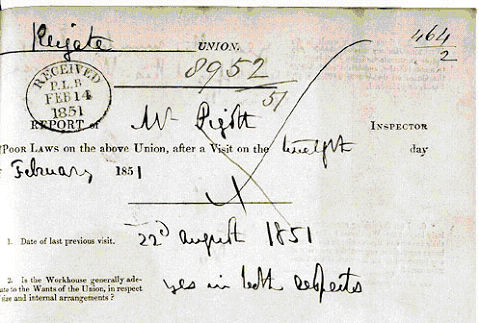 Reigate UNION. 464
2
8952
51
RECEIVED
P.L.B
FEB 14
1851
REPORT of Mr Pigott INSPECTOR
POOR LAWS on the above Union, after a Visit on the twelfth day
February 1851
1. Date of last previous visit. 22d August 1851
2. Is the Workhouse generally ade-
uate to the Wants of the Union, in respect
size and internal arrangements? yes in both respects